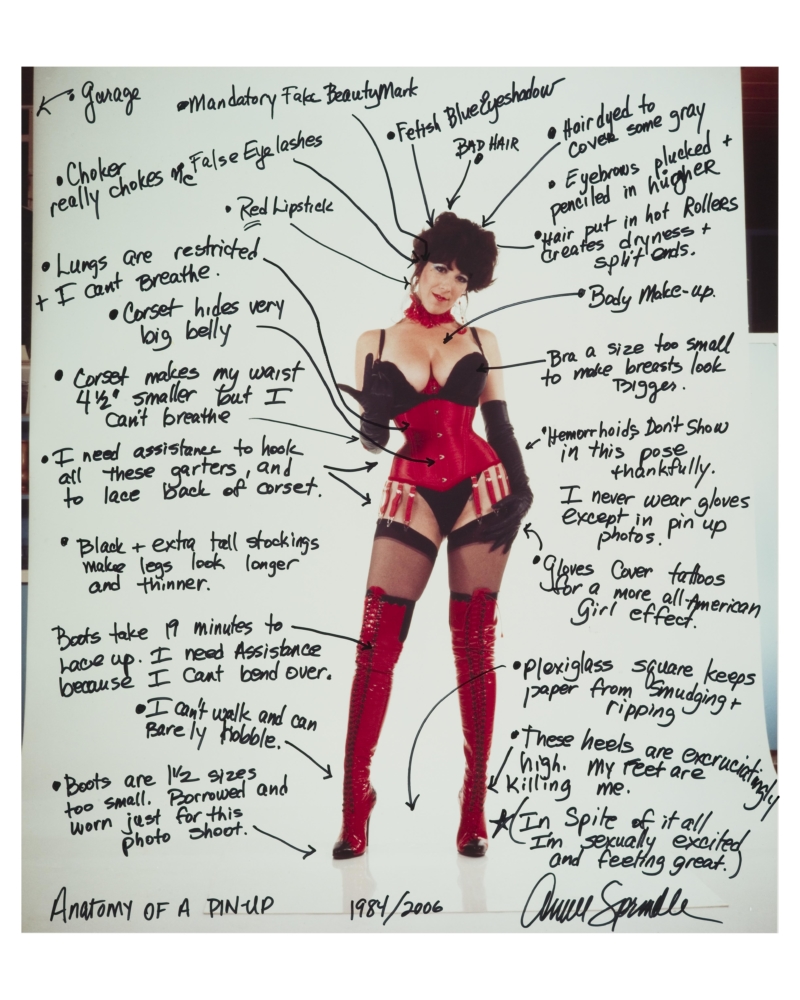 Garage
• Mandatory Fake Beauty Mark
• Fetish Blue Eyeshadow
BAD HAIR
• Hair dyed to
cover some gray
• Choker
really chokes me
False Eyelashes
• Eyebrows plucked +
penciled in higher
• Red Lipstick
• Hair put in hot Rollers
creates dryness +
split ends.
• Lungs are restricted
+ I cant Breathe.
• Body Make-up.
• Corset hides very
big belly
Bra a size too small
to make breasts look
Bigger.
• Corset makes my waist
4½" smaller but I
Can't breathe
• Hemorrhoids Don't Show
in this pose
thankfully.
• I need assistance to hook
all these garters, and
to lace back of corset.
I never wear gloves
except in pin up
photos.
• Black + extra tall stockings
make legs look longer
and thinner.
• Gloves Cover tattoos
for a more all-American
Girl effect.
Boots take 19 minutes to
Lace up. I need Assistance
because I Cant bend over.
• plexiglass square keeps
paper from smudging +
ripping
• I can't walk and can
Barely hobble.
• These heels are excruciatingly
high. My feet are
Killing me.
• Boots are 1½ sizes
too small. Borrowed and
worn just for this
photo shoot.
(In Spite of it all
I'm sexually excited
and feeling great.)
ANATOMY OF A PIN-UP
1984/2006
Annie Sprinkle